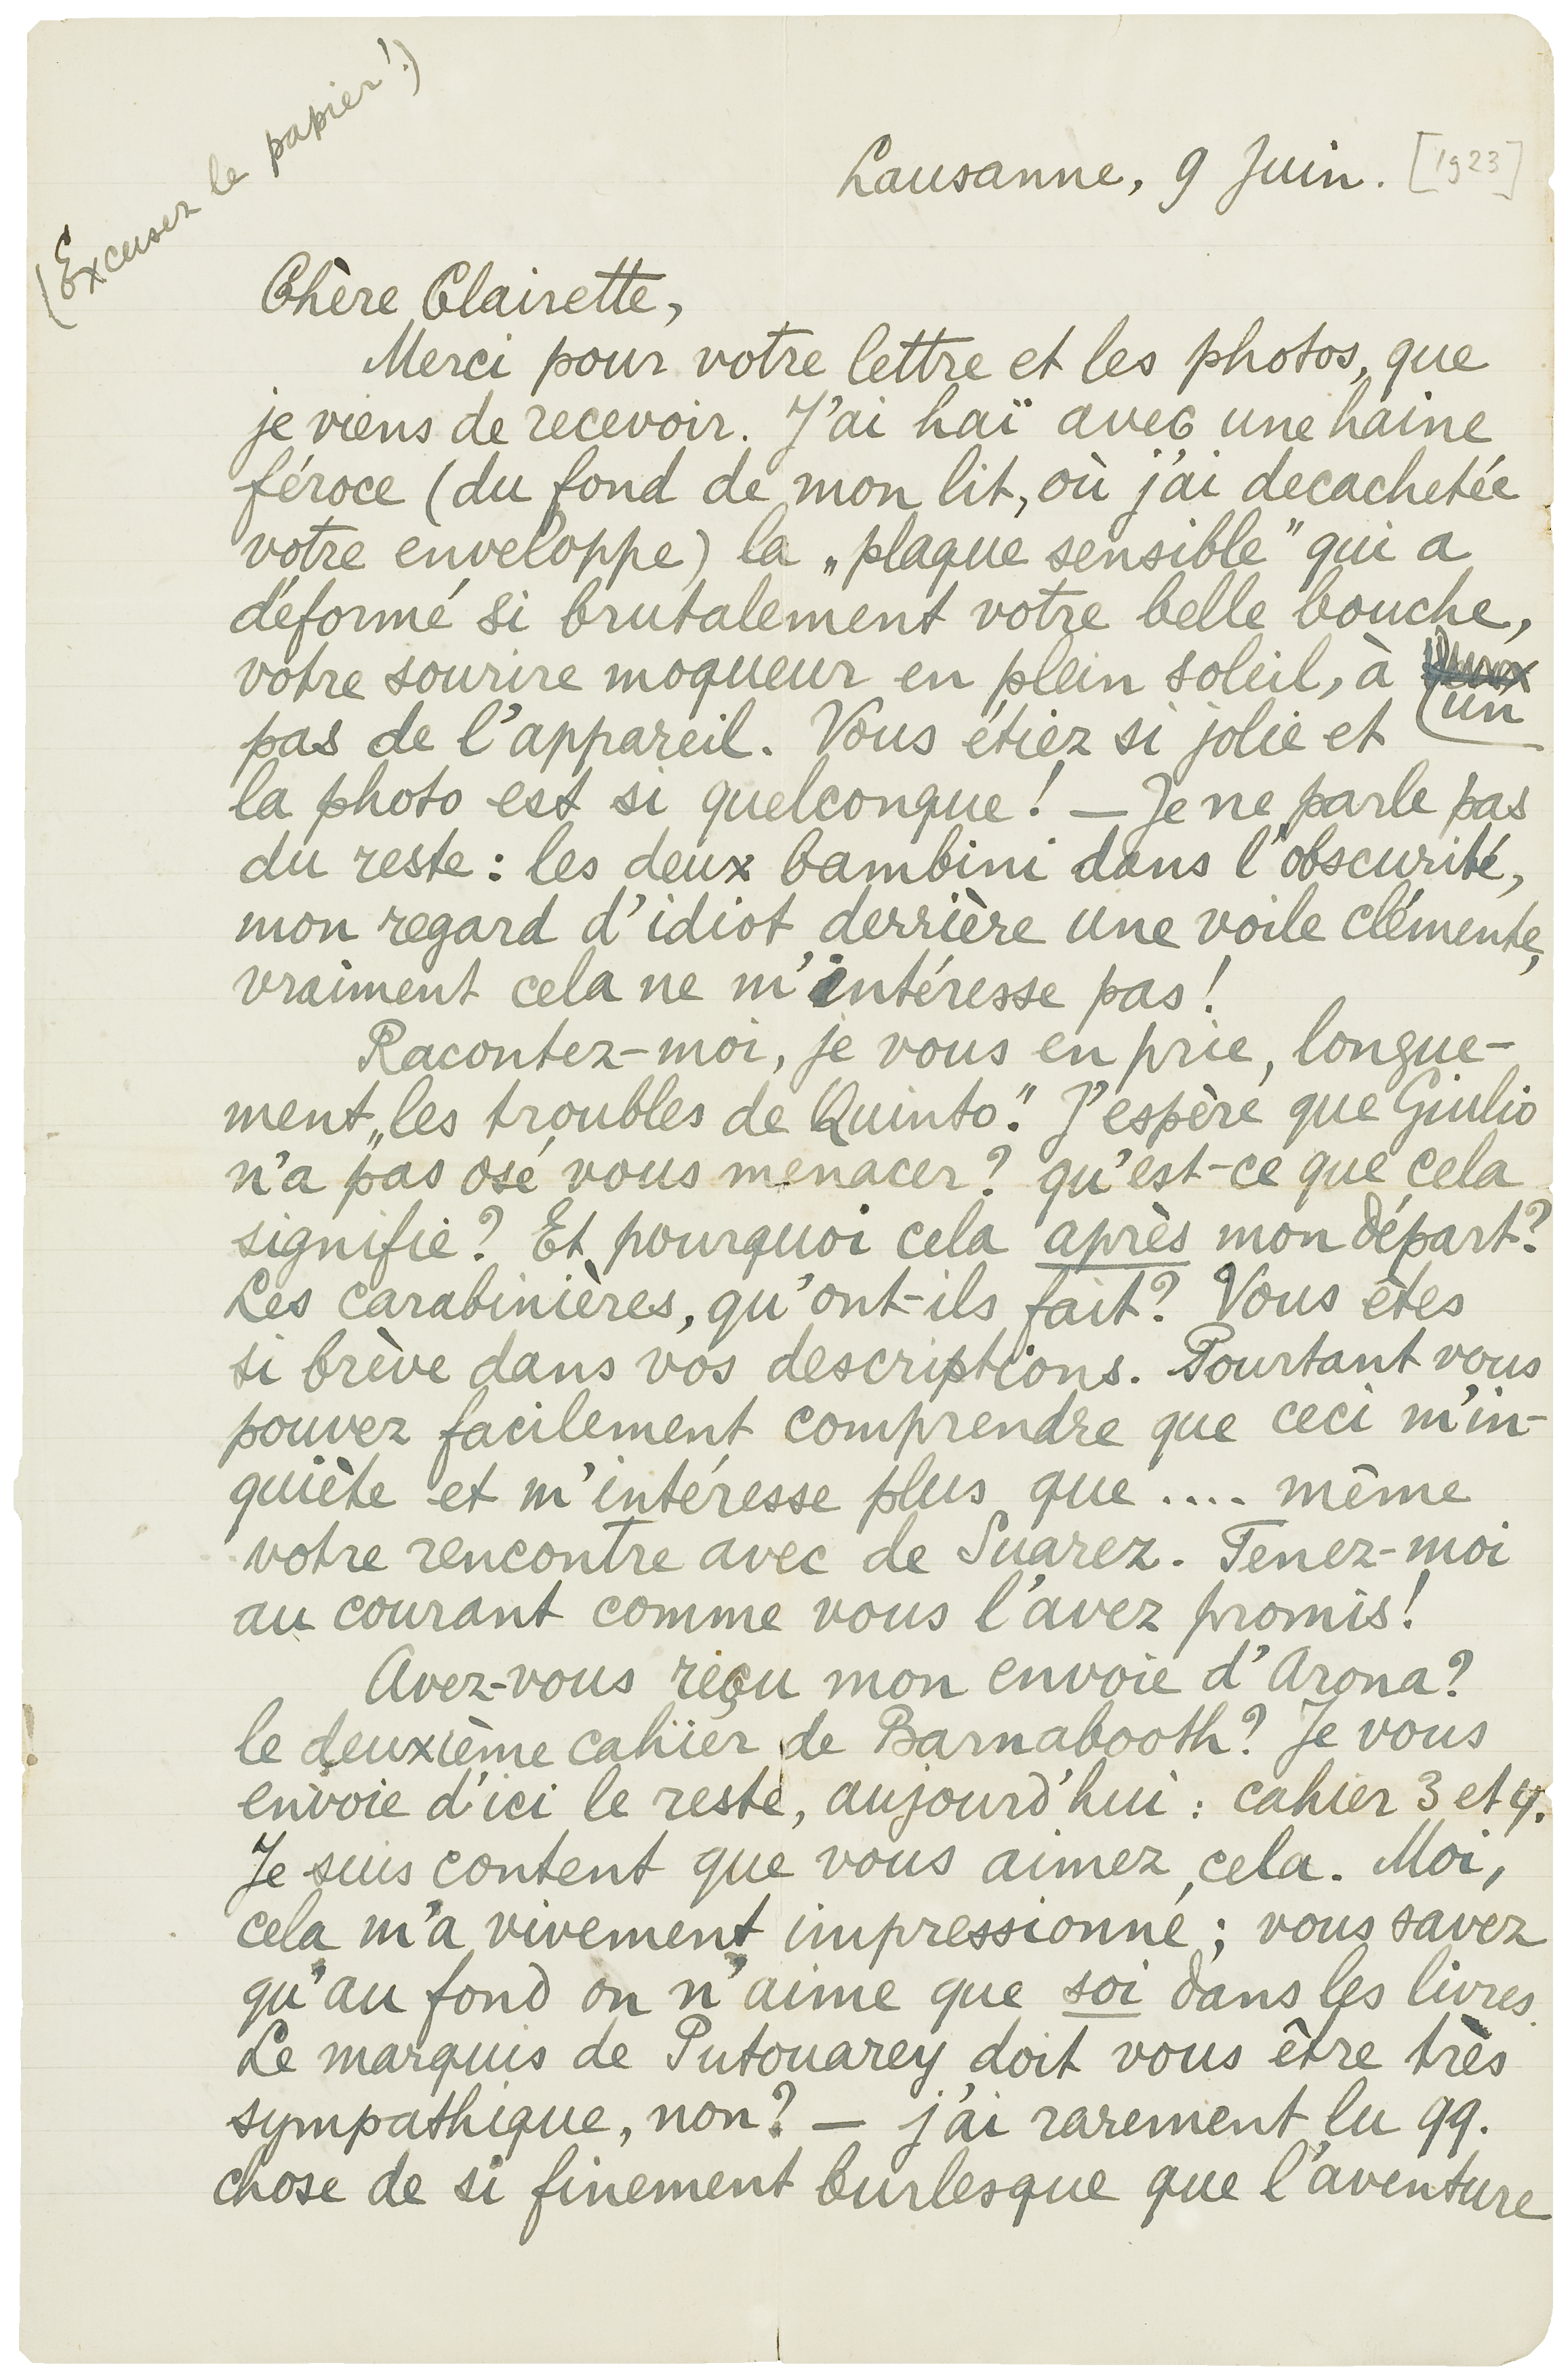 (Excusez le papier!)
Lausanne, 9 Juin. [1923]
Chère Clairette,
Merci pour votre lettre et les photos, que
je viens de recevoir. J'ai haï avec une haine
féroce (du fond de mon lit, où j'ai decachetée
votre enveloppe) la „plaque sensible" qui a
déformé si brutalement votre belle bouche,
votre sourire moqueur en plein soleil, à
un
pas de l'appareil. Vous étiez si jolie et
la photo est si quelconque! — Je ne parle pas
du reste: les deux bambini dans l'obscurité,
mon regard d'idiot derrière une voile clémente,
vraiment cela ne m'intéresse pas!
Racontez-moi, je vous en prie, longue-
ment „les troubles de Quinto". J'espère que Giulio
n'a pas osé vous menacer? qu'est-ce que cela
signifie? Et pourquoi cela après mon départ?
Les carabinières, qu'ont-ils fait? Vous êtes
si brève dans vos descriptions. Pourtant vous
pouvez facilement comprendre que ceci m'in-
quiète et m'intéresse plus que .... même
votre rencontre avec de Suarez. Tenez-moi
au courant comme vous l'avez promis!
Avez-vous reçu mon envoie d'Arona?
le deuxième cahier de Barnabooth? Je vous
envoie d'ici le reste, aujourd'hui: cahier 3 et 4.
Je suis content que vous aimez cela. Moi,
cela m'a vivement impressionné; vous savez
qu'au fond on n'aime que soi dans les livres.
Le marquis de Putouarey doit vous être très
sympathique, non? — j'ai rarement lu qq.
chose de si finement burlesque que l'aventure